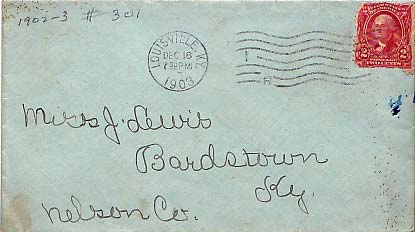 1902-3 # 301
LOUISVILLE, KY.
DEC 16
1903
Miss J. Lewis
Bardstown
Ky.
Nelson Co.